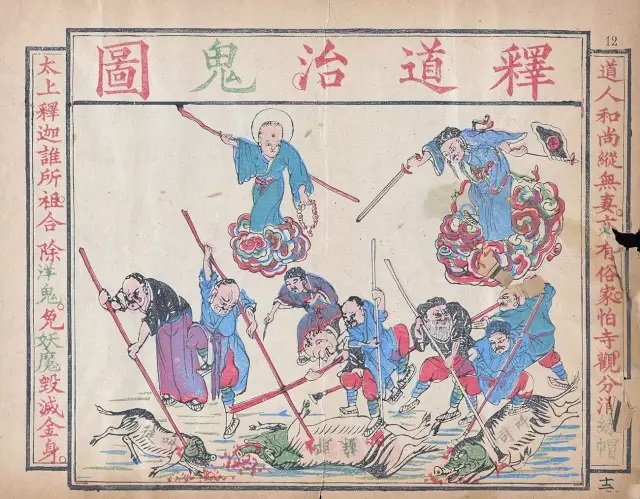 12
釋道治鬼圖
道人和尚縱無妻。亦有俗家。怕寺觀分消綠帽
太上釋迦誰所祖。合除洋鬼。免妖魔毀滅金身。
十二